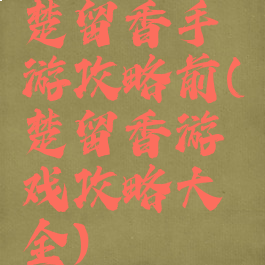 楚留香手
游攻略前(
楚留香游
戏攻略大
全)